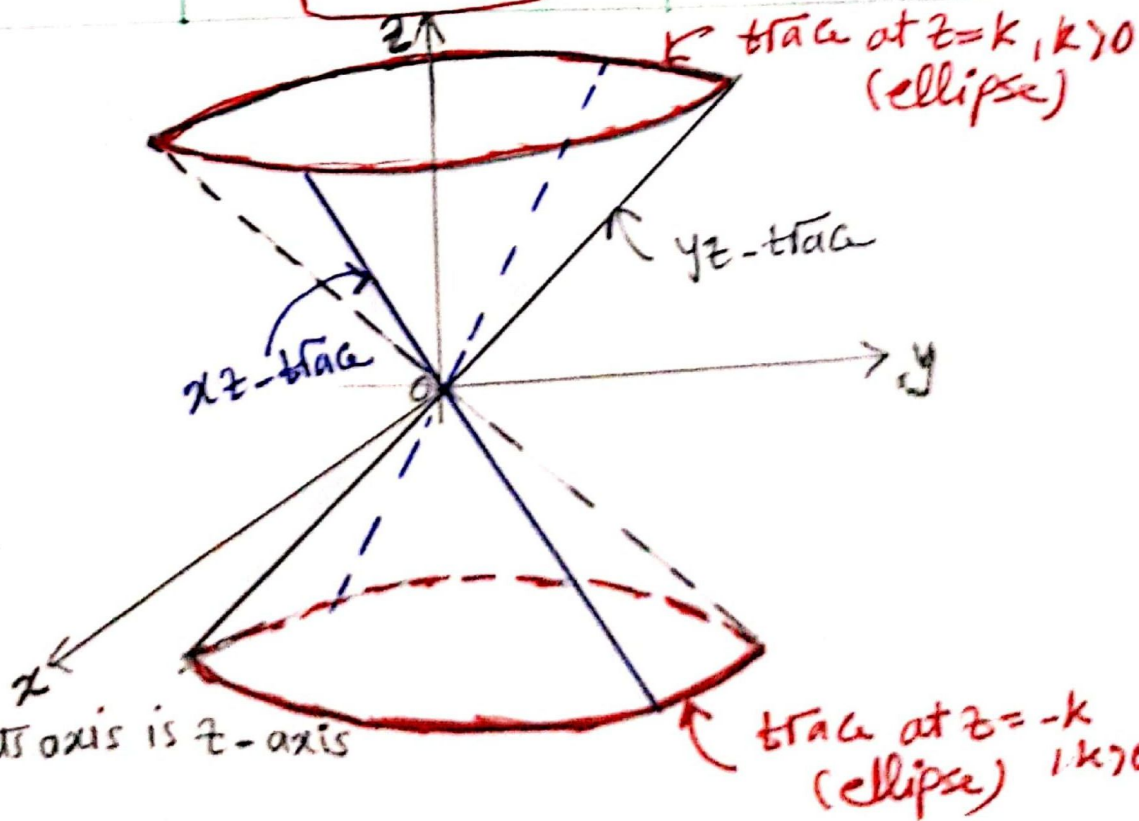 z
trace at z=k, k>0
(ellipse)
yz-trace
xz-trace
O
y
x
axis is z-axis
trace at z=-k
(ellipse) , k>0